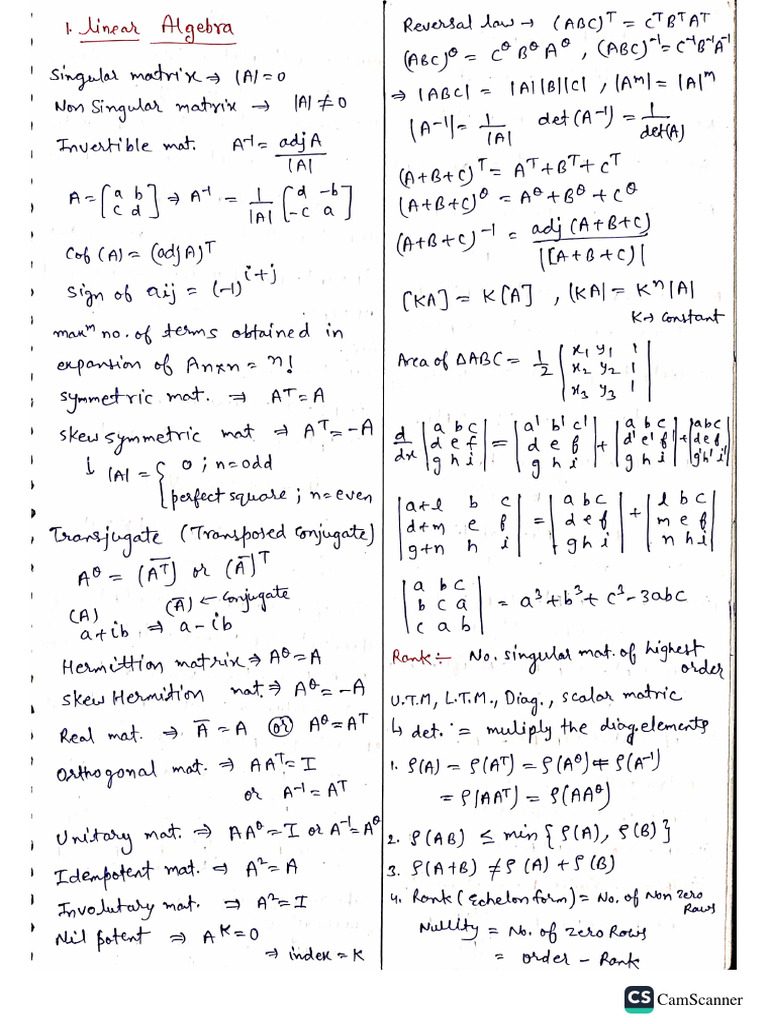 1. Linear Algebra
Singular matrix → |A|=0
Non Singular matrix → |A|≠0
Invertible mat. A⁻¹ = adj A / |A|
A = [a b; c d] ⇒ A⁻¹ = 1/|A| [d -b; -c a]
Cof (A) = (adj A)ᵀ
Sign of aij = (-1)^(i+j)
maxᵐ no. of terms obtained in
expansion of Anxn = n!
Symmetric mat. ⇒ Aᵀ=A
Skew symmetric mat ⇒ Aᵀ=-A
↓ |A| = { 0 ; n=odd
perfect square ; n=even
Transjugate (Transposed conjugate)
A^θ = (A̅ᵀ) or (A̅)ᵀ
(A) (A̅) ← conjugate
a+ib ⇒ a-ib
Hermittion matrix ⇒ A^θ=A
Skew Hermition mat ⇒ A^θ=-A
Real mat. ⇒ A̅=A or A^θ=Aᵀ
Orthogonal mat. ⇒ AAᵀ=I
or A⁻¹=Aᵀ
Unitary mat. ⇒ AA^θ=I or A⁻¹=A^θ
Idempotent mat. ⇒ A²=A
Involutary mat. ⇒ A²=I
Nil potent ⇒ A^K=0
⇒ index=K
Reversal law → (ABC)ᵀ = CᵀBᵀAᵀ
(ABC)^θ = C^θ B^θ A^θ , (ABC)⁻¹ = C⁻¹B⁻¹A⁻¹
⇒ |ABC| = |A||B||C| , |Aᵐ| = |A|ᵐ
|A⁻¹| = 1/|A| det(A⁻¹) = 1/det(A)
(A+B+C)ᵀ = Aᵀ+Bᵀ+Cᵀ
(A+B+C)^θ = A^θ+B^θ+C^θ
(A+B+C)⁻¹ = adj (A+B+C) / |[A+B+C)|
[KA] = K[A] , |KA| = Kⁿ|A|
K→ constant
Area of ΔABC = 1/2 |x₁ y₁ 1; x₂ y₂ 1; x₃ y₃ 1|
d/dx |a b c; d e f; g h i| = |a' b' c'; d e f; g h i| + |a b c; d' e' f'; g h i| + |a b c; d e f; g' h' i'|
|a+l b c; d+m e f; g+n h i| = |a b c; d e f; g h i| + |l b c; m e f; n h i|
|a b c; b c a; c a b| = a³+b³+c³-3abc
Rank:- No. singular mat. of highest
order
U.T.M, L.T.M., Diag., scalar matric
↳ det. = muliply the diag.elements
1. ρ(A) = ρ(Aᵀ) = ρ(A^θ) ≠ ρ(A⁻¹)
= ρ|AAᵀ) = ρ(AA^θ)
2. ρ(AB) ≤ min{ρ(A), ρ(B)}
3. ρ(A+B) ≠ ρ(A) + ρ(B)
4. Rank (Echelon form) = No. of Non zero
Rows
Nullity = No. of zero Rows
= order - Rank
CS CamScanner